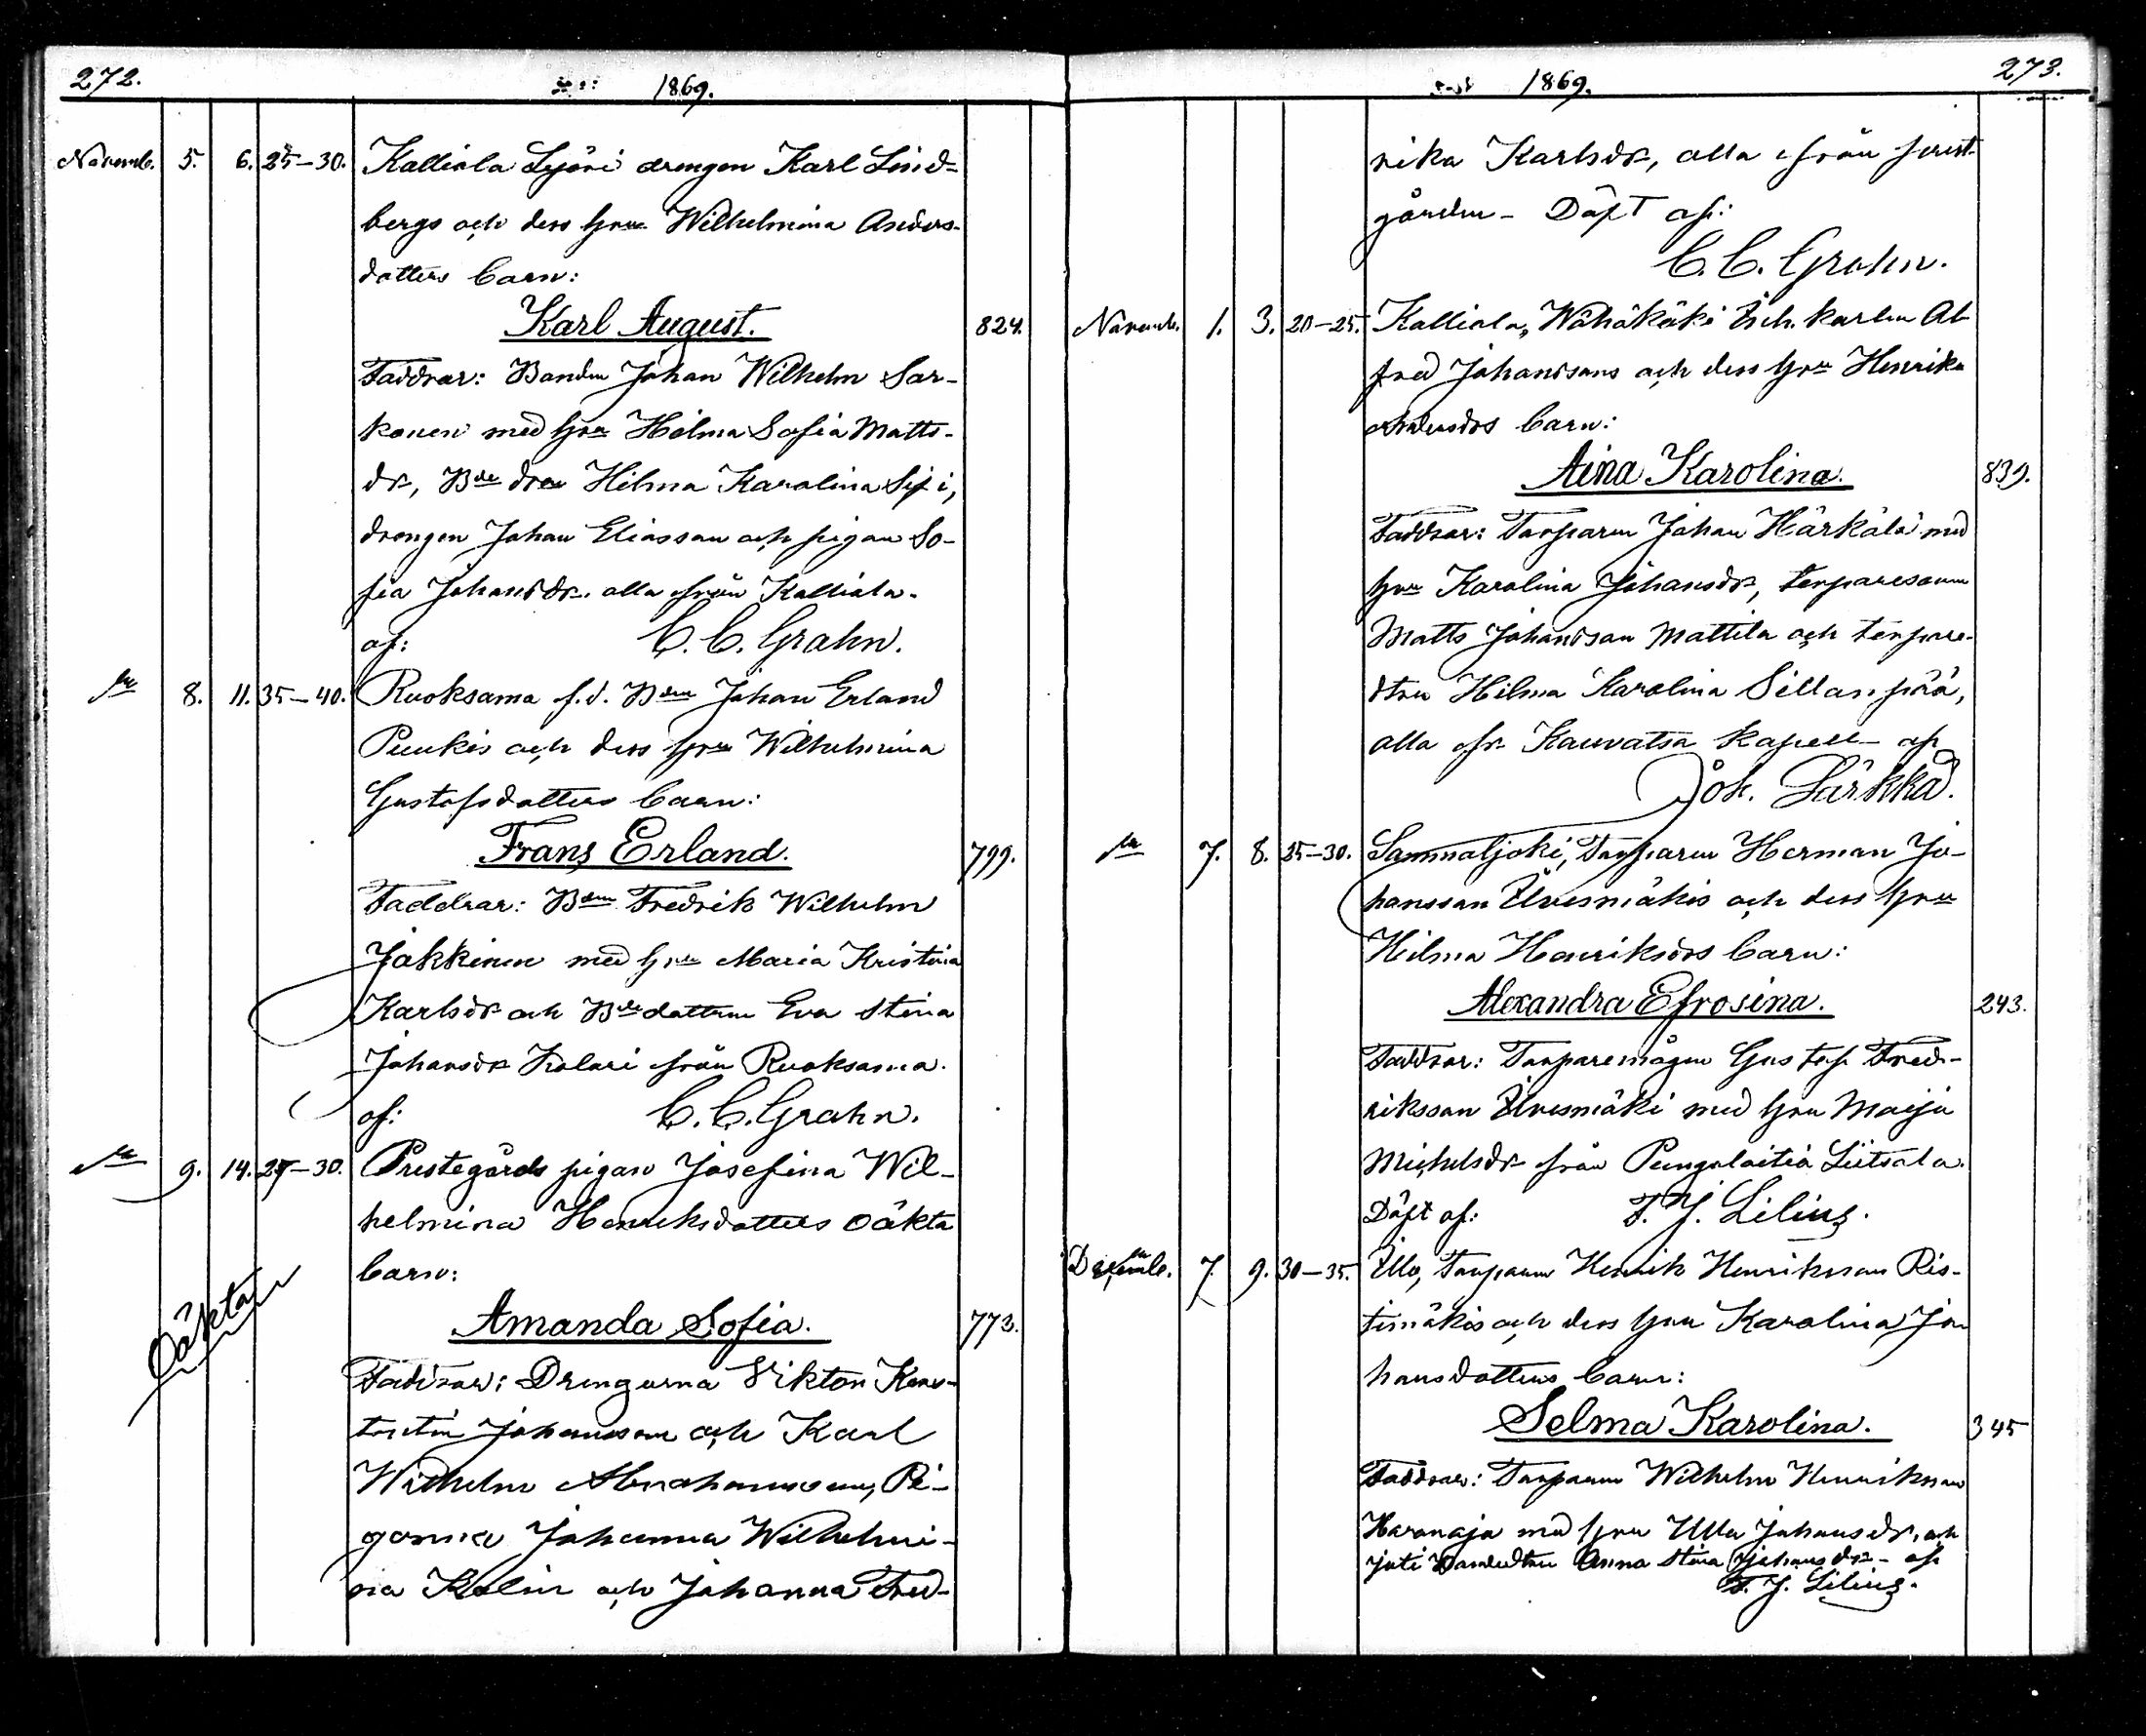 272.
1869.
Novemb. 5. 6. 25–30. Kalliala Lyöri drengen Karl Lind-
bergs och dess hru Wilhelmina Anders-
dotters barn:
Karl August. 824.
Faddrar: Bonden Johan Wilhelm Sar-
konen med hru Hilma Sofia Matts-
dr, Bde dren Hilma Karolina
drengen Johan Eliasson och pigan So-
fia Johansdr. alla från Kalliala.
af: C. C. Grahn.
8. 11. 35–40. Ruoksama f.d. Bden Johan Erland
Punkis och dess hru Wilhelmina
Gustafsdotters barn:
Frans Erland. 799.
Faddrar: Bden Fredrik Wilhelm
Jakkinen med hru Maria Kristina
Karlsdr och Bdedottern Eva Stina
Johansdr Kolari från Ruoksama.
af: C. C. Grahn.
9. 14. 25–30. Prestegårds pigan Josefina Wil-
helmina Henriksdotters oäkta
barn:
Oäkta
Amanda Sofia. 773.
Faddrar: Drengarna Viktor Kons-
tantin Johansson och Karl
Wilhelm Abrahamsson, Pi-
gorna Johanna Wilhelmi-
na Kolin och Johanna Fred-
273.
1869.
rika Karlsdr, alla från prest-
gården – Döpt af:
C. C. Grahn.
Novemb. 1. 3. 20–25. Kalliala, Wähäkäki Insh. karlen Al-
fred Johanssons och dess hru Henrika
barn:
Aina Karolina. 839.
Faddrar: Torparen Johan Härkälä med
hru Karolina Johansdr, torparesonen
Matts Johansson Mattila och torpare-
dtren Hilma Karolina Sillanpää,
alla fr. Kauvatsa kapell – af
Joh. Särkkä.
7. 8. 25–30. Sammaljoki, Torparen Herman Jo-
hansson Ilvesmäkis och dess hru
Hilma Henriksdrs barn:
Alexandra Efrosina. 243.
Faddrar: Torparemågen Gustaf Fred-
riksson Ilvesmäki med hru Maija
Michelsdr från Pungalaitia Liitsala.
Döpt af: F. J. Lilius.
Decemb. 7. 9. 30–35. Illo, Torparen Henrik Henriksson Ris-
timäkis och dess hru Karolina Jo-
hansdotters barn:
Selma Karolina. 345
Faddrar: Torparen Wilhelm Henriksson
Haranoja med hru Ulla Johansdr, och
Anna Stina Johansdr – af
F. J. Lilius.